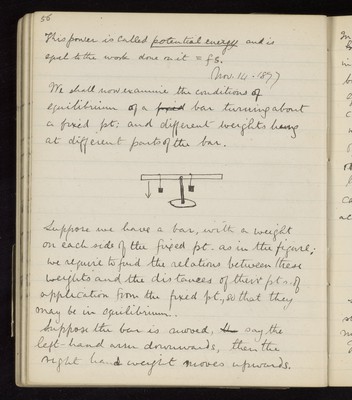 56
This power is called potential energy and is
equal to the work done on it = fs.
Nov. 14. 1897
We shall now examine the conditions of
equilibrium of a fixed bar turning about
a fixed pt: and different weights being
at different parts of the bar.
Suppose we have a bar, with a weight
on each side of the fixed pt. as in the figure;
we require to find the relations between these
weights and the distances of their pts. of
application from the fixed pt., so that they
may be in equilibrium.
Suppose the bar is moved, say the
left-hand arm downwards, then the
right hand weight moves upwards.